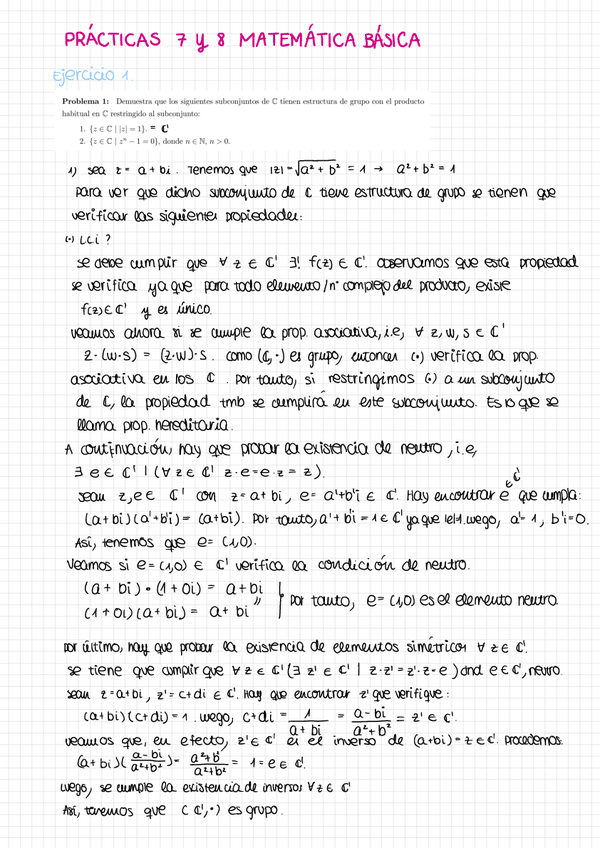 PRÁCTICAS 7 y 8 MATEMÁTICA BÁSICA
Ejercicio 1
Problema 1: Demuestra que los siguientes subconjuntos de ℂ tienen estructura de grupo con el producto
habitual en ℂ restringido al subconjunto:
1. {z ∈ ℂ | |z| = 1}. = ℂ'
2. {z ∈ ℂ | zⁿ − 1 = 0}, donde n ∈ ℕ, n > 0.
1) sea z = a + bi. Tenemos que |z| = √a² + b² = 1 → a² + b² = 1
Para ver que dicho subconjunto de ℂ tiene estructura de grupo se tienen que
verificar las siguientes propiedades:
(·) LCI ?
se debe cumplir que ∀ z ∈ ℂ' ∃! f(z) ∈ ℂ'. Observamos que esta propiedad
se verifica ya que para todo elemento/nº complejo del producto, existe
f(z) ∈ ℂ' y es único.
veamos ahora si se cumple la prop. asociativa, i.e, ∀ z, w, s ∈ ℂ'
z·(w·s) = (z·w)·s. como (ℂ,·) es grupo, entonces (·) verifica la prop.
asociativa en los ℂ. Por tanto, si restringimos (·) a un subconjunto
de ℂ, la propiedad tmb se cumplirá en este subconjunto. Es lo que se
llama prop. hereditaria.
A continuación, hay que probar la existencia de neutro, i.e,
∃ e ∈ ℂ' | (∀ z ∈ ℂ' z·e = e·z = z).
sean z, e ∈ ℂ' con z = a + bi, e = a' + b'i ∈ ℂ'. Hay encontrar e ∈ ℂ' que cumpla:
(a + bi)(a' + b'i) = (a + bi). Por tanto, a' + b'i = 1 ∈ ℂ' ya que |e|=1. Luego, a' = 1, b'i = 0.
Así, tenemos que e = (1,0).
Veamos si e = (1,0) ∈ ℂ' verifica la condición de neutro.
(a + bi) · (1 + 0i) = a + bi
(1 + 0i)(a + bi) = a + bi // Por tanto, e = (1,0) es el elemento neutro.
por último, hay que probar la existencia de elementos simétricos ∀ z ∈ ℂ'.
se tiene que cumplir que ∀ z ∈ ℂ' (∃ z' ∈ ℂ' | z·z' = z'·z = e) cnd e ∈ ℂ', neutro.
sean z = a + bi, z' = c + di ∈ ℂ'. Hay que encontrar z' que verifique:
(a + bi)(c + di) = 1. Luego, c + di = 1/(a + bi) = (a − bi)/(a² + b²) = z' ∈ ℂ'.
veamos que, en efecto, z' ∈ ℂ' es el inverso de (a + bi) = z ∈ ℂ'. Procedemos:
(a + bi)((a − bi)/(a² + b²)) = (a² + b²)/(a² + b²) = 1 = e ∈ ℂ'.
Luego, se cumple la existencia de inversos ∀ z ∈ ℂ'
Así, tenemos que (ℂ',·) es grupo.